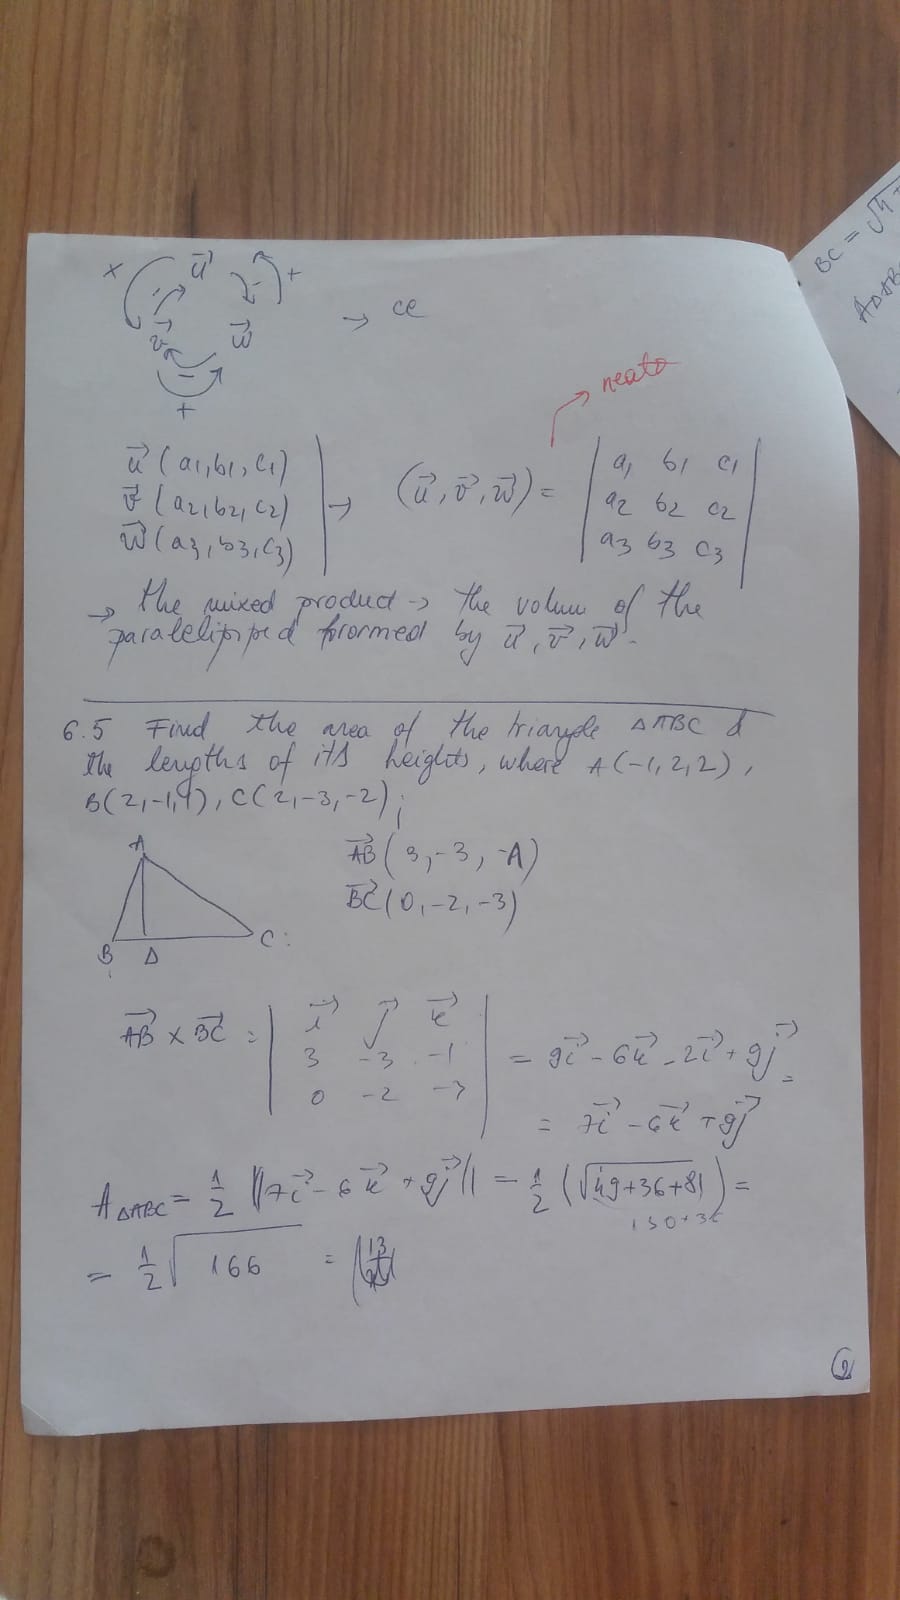 BC = √4+
A△AB
x u⃗ - - +
v⃗ w⃗ → ce
-
+
neato
u⃗ (a1, b1, c1)
v⃗ (a2, b2, c2)
w⃗ (a3, b3, c3)
→ (u⃗, v⃗, w⃗) =
a1 b1 c1
a2 b2 c2
a3 b3 c3
→ the mixed product → the volum of the
paralelipiped formed by u⃗, v⃗, w⃗.
6.5 Find the area of the triangle △ABC &
the lengths of its heights, where A(-1,2,2),
B(2,-1,1), C(2,-3,-2);
A
B D C
AB⃗ (3, -3, -1)
BC⃗ (0, -2, -3)
AB⃗ × BC⃗ =
i⃗ j⃗ k⃗
3 -3 -1
0 -2 -3
= 9i⃗ - 6k⃗ - 2i⃗ + 9j⃗ =
= 7i⃗ - 6k⃗ + 9j⃗
A△ABC = 1/2 ||7i⃗ - 6k⃗ + 9j⃗|| = 1/2 (√49+36+81) =
130+36
= 1/2 √166 =
2